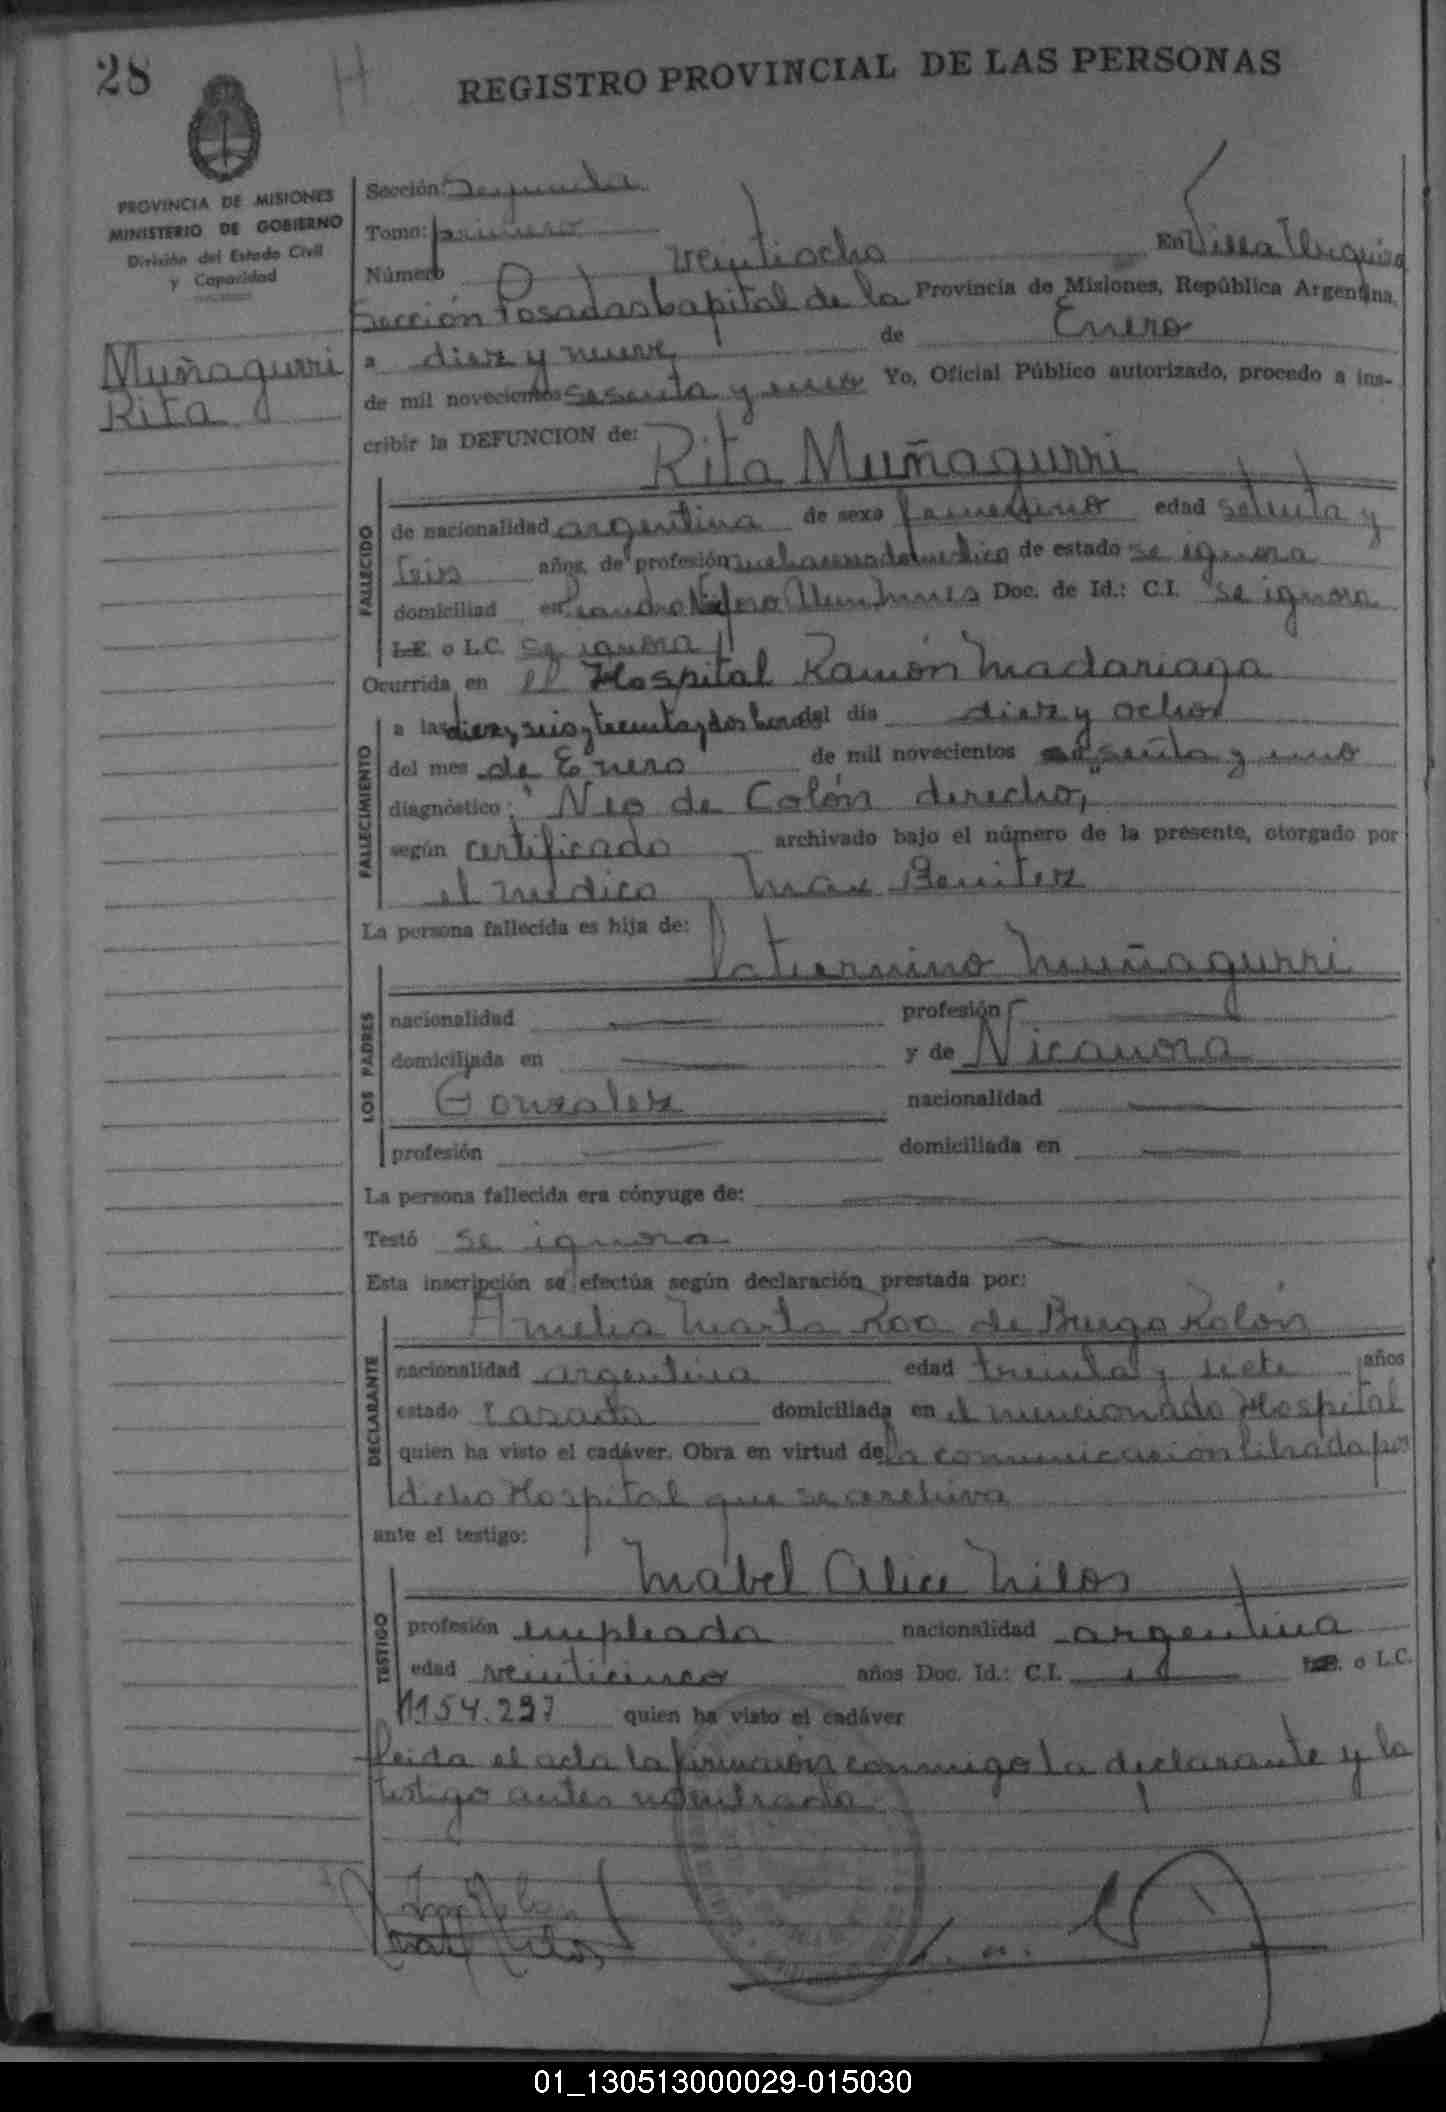 28
H
REGISTRO PROVINCIAL DE LAS PERSONAS
PROVINCIA DE MISIONES
MINISTERIO DE GOBIERNO
División del Estado Civil
y Capacidad
Muñagurri
Rita
Sección: Segunda
Tomo: primero
Número veintiocho En Villa Urquiza
Sección Posadas Capital de la Provincia de Misiones, República Argentina,
a diez y nueve de Enero
de mil novecientos sesenta y uno Yo, Oficial Público autorizado, procedo a ins-
cribir la DEFUNCION de: Rita Muñagurri
FALLECIDO
de nacionalidad argentina de sexo femenino edad setenta y
seis años, de profesión de estado se ignora
domiciliad en Leandro Doc. de Id.: C.I. se ignora
L.E. o L.C. se ignora
Ocurrida en el Hospital Ramón Madariaga
FALLECIMIENTO
a las diez y seis y treinta y dos horas del día diez y ocho
del mes de Enero de mil novecientos sesenta y uno
diagnóstico: "Neo de Colón derecho,
según certificado archivado bajo el número de la presente, otorgado por
el médico Max Benitez
La persona fallecida es hija de:
Muñagurri
LOS PADRES
nacionalidad — profesión —
domiciliada en — y de Nicanora
Gonzalez nacionalidad —
profesión — domiciliada en —
La persona fallecida era cónyuge de: —
Testó se ignora —
Esta inscripción se efectúa según declaración prestada por:
Amelia Marta Roa de Burgo Kolón
DECLARANTE
nacionalidad argentina edad treinta y siete años
estado casada domiciliada en el mencionado Hospital
quien ha visto el cadáver. Obra en virtud de la comunicación librada por
dicho Hospital que se archiva
ante el testigo:
Mabel Alice Milos
TESTIGO
profesión empleada nacionalidad argentina
edad veinticinco años Doc. Id.: C.I. — L.E. o L.C.
1154.297 quien ha visto el cadáver
Leida el acta la firmaron conmigo la declarante y la
testigo antes nombrada
01_130513000029-015030